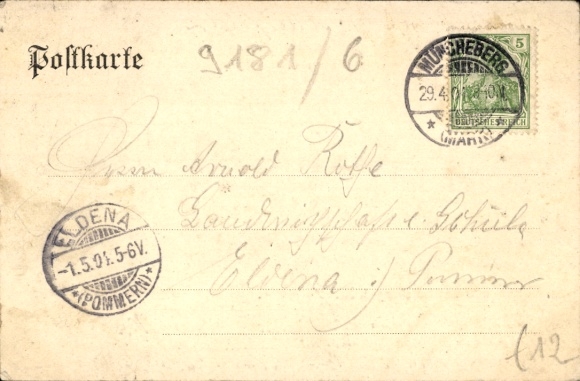 Postkarte
9181/6
MÜNCHEBERG
29.4.01
(MARK)
5
DEUTSCHES REICH
Herrn Arnold Rothe
Landwirthschafts Schule
Eldena i/ Pommern
ELDENA
-1.5.01.5-6V.
*(POMMERN)*
(12